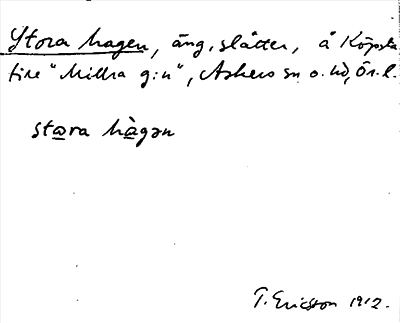 Stora hagen, äng, slåtter, å Köpsta
tire "Millra g:n", Askers sn o. hd, Ör. l.
stora hàgən
T. Ericsson 1912.